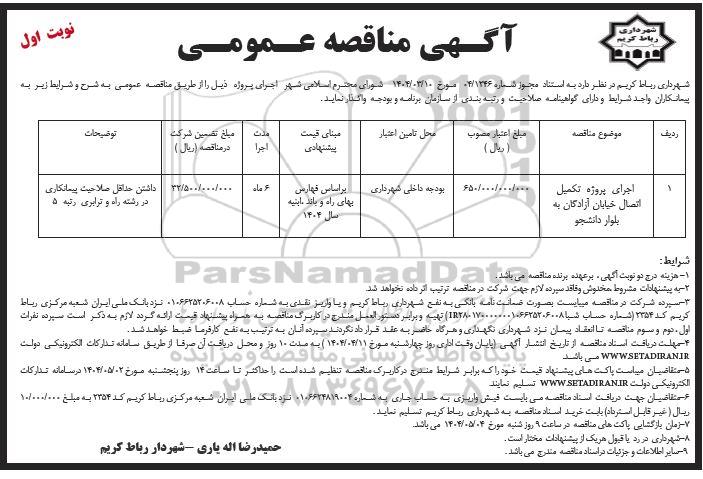 شهرداری
رباط کریم
آگهی مناقصه عمومی
نوبت اول
شهرداری رباط کریم در نظر دارد به استناد مجوز شماره ۰۴/۱۲۴۶ مورخ ۱۴۰۴/۰۳/۱۰ شورای محترم اسلامی شهر اجرای پروژه ذیل را از طریق مناقصه عمومی به شرح و شرایط زیر به
پیمانکاران واجد شرایط و دارای گواهینامه صلاحیت و رتبه بندی از سازمان برنامه و بودجه واگذار نماید.
ردیف موضوع مناقصه مبلغ اعتبار مصوب (ریال) محل تامین اعتبار مبنای قیمت پیشنهادی مدت اجرا مبلغ تضمین شرکت درمناقصه (ریال) توضیحات
۱ اجرای پروژه تکمیل اتصال خیابان آزادگان به بلوار دانشجو ۶۵۰/۰۰۰/۰۰۰/۰۰۰ بودجه داخلی شهرداری براساس فهارس بهای راه و باند ،ابنیه سال ۱۴۰۴ ۶ ماه ۳۲/۵۰۰/۰۰۰/۰۰۰ داشتن حداقل صلاحیت پیمانکاری در رشته راه و ترابری رتبه ۵
شرایط:
۱- هزینه درج دو نوبت آگهی، برعهده برنده مناقصه می باشد.
۲- به پیشنهادات مشروط ،مخدوش وفاقد سپرده لازم جهت شرکت در مناقصه ترتیب اثر داده نخواهد شد.
۳- سپرده شرکت در مناقصه میبایست بصورت ضمانت نامه بانکی به نفع شهرداری رباط کریم و یا واریز نقدی به شماره حساب ۰۱۰۶۶۲۵۲۰۶۰۰۸ نزد بانک ملی ایران شعبه مرکزی رباط
کریم کد ۲۳۵۴ (شماره حساب شبا ) تهیه و برابر دستورالعمل مندرج در کاربرگ مناقصه به همراه پیشنهاد قیمت ارائه گردد لازم به ذکر است سپرده نفرات
اول، دوم و سوم مناقصه تا انعقاد پیمان نزد شهرداری نگهداری و هرگاه حاضر به عقد قرار داد نگردند سپرده آنان به ترتیب به نفع کارفرما ضبط خواهد شد.
۴- مهلت دریافت اسناد مناقصه از تاریخ انتشار آگهی (پایان وقت اداری روز چهارشنبه مورخ ۱۴۰۴/۰۴/۱۱ ) به مدت ۱۰ روز و محل دریافت آن صرفا از طریق سامانه تدارکات الکترونیکی دولت
WWW.SETADIRAN.IR می باشد.
۵- متقاضیان میبایست پاکت های پیشنهاد قیمت خود را که برابر شرایط مندرج در کاربرگ مناقصه تنظیم شده است را حداکثر تا ساعت ۱۴ روز پنجشنبه مورخ ۱۴۰۴/۰۵/۰۲ درسامانه تدارکات
الکترونیکی دولت WWW.SETADIRAN.IR تسلیم نمایند.
۶- متقاضیان جهت دریافت اسناد مناقصه می بایست فیش واریزی به حساب جاری به شماره ۰۱۰۶۶۲۴۸۱۹۰۰۴ نزد بانک ملی ایران شعبه مرکزی رباط کریم کد ۲۳۵۴ به مبلغ ۱۰/۰۰۰/۰۰۰
ریال ( غیر قابل استرداد) بابت خرید اسناد مناقصه به شهرداری رباط کریم تسلیم نماید.
۷- زمان بازگشایی پاکت های مناقصه در ساعت ۹ روز شنبه مورخ ۱۴۰۴/۰۵/۰۴ می باشد.
۸- شهرداری در رد یا قبول هریک از پیشنهادات مختار است.
۹- سایر اطلاعات و جزئیات در اسناد مناقصه مندرج می باشد.
حمیدرضا اله یاری – شهردار رباط کریم
ParsNamadData
پایگاه اطلاع رسانی مناقصه مزایده
۰۲۱-۸۸۳۴۹۶۷۰-۵